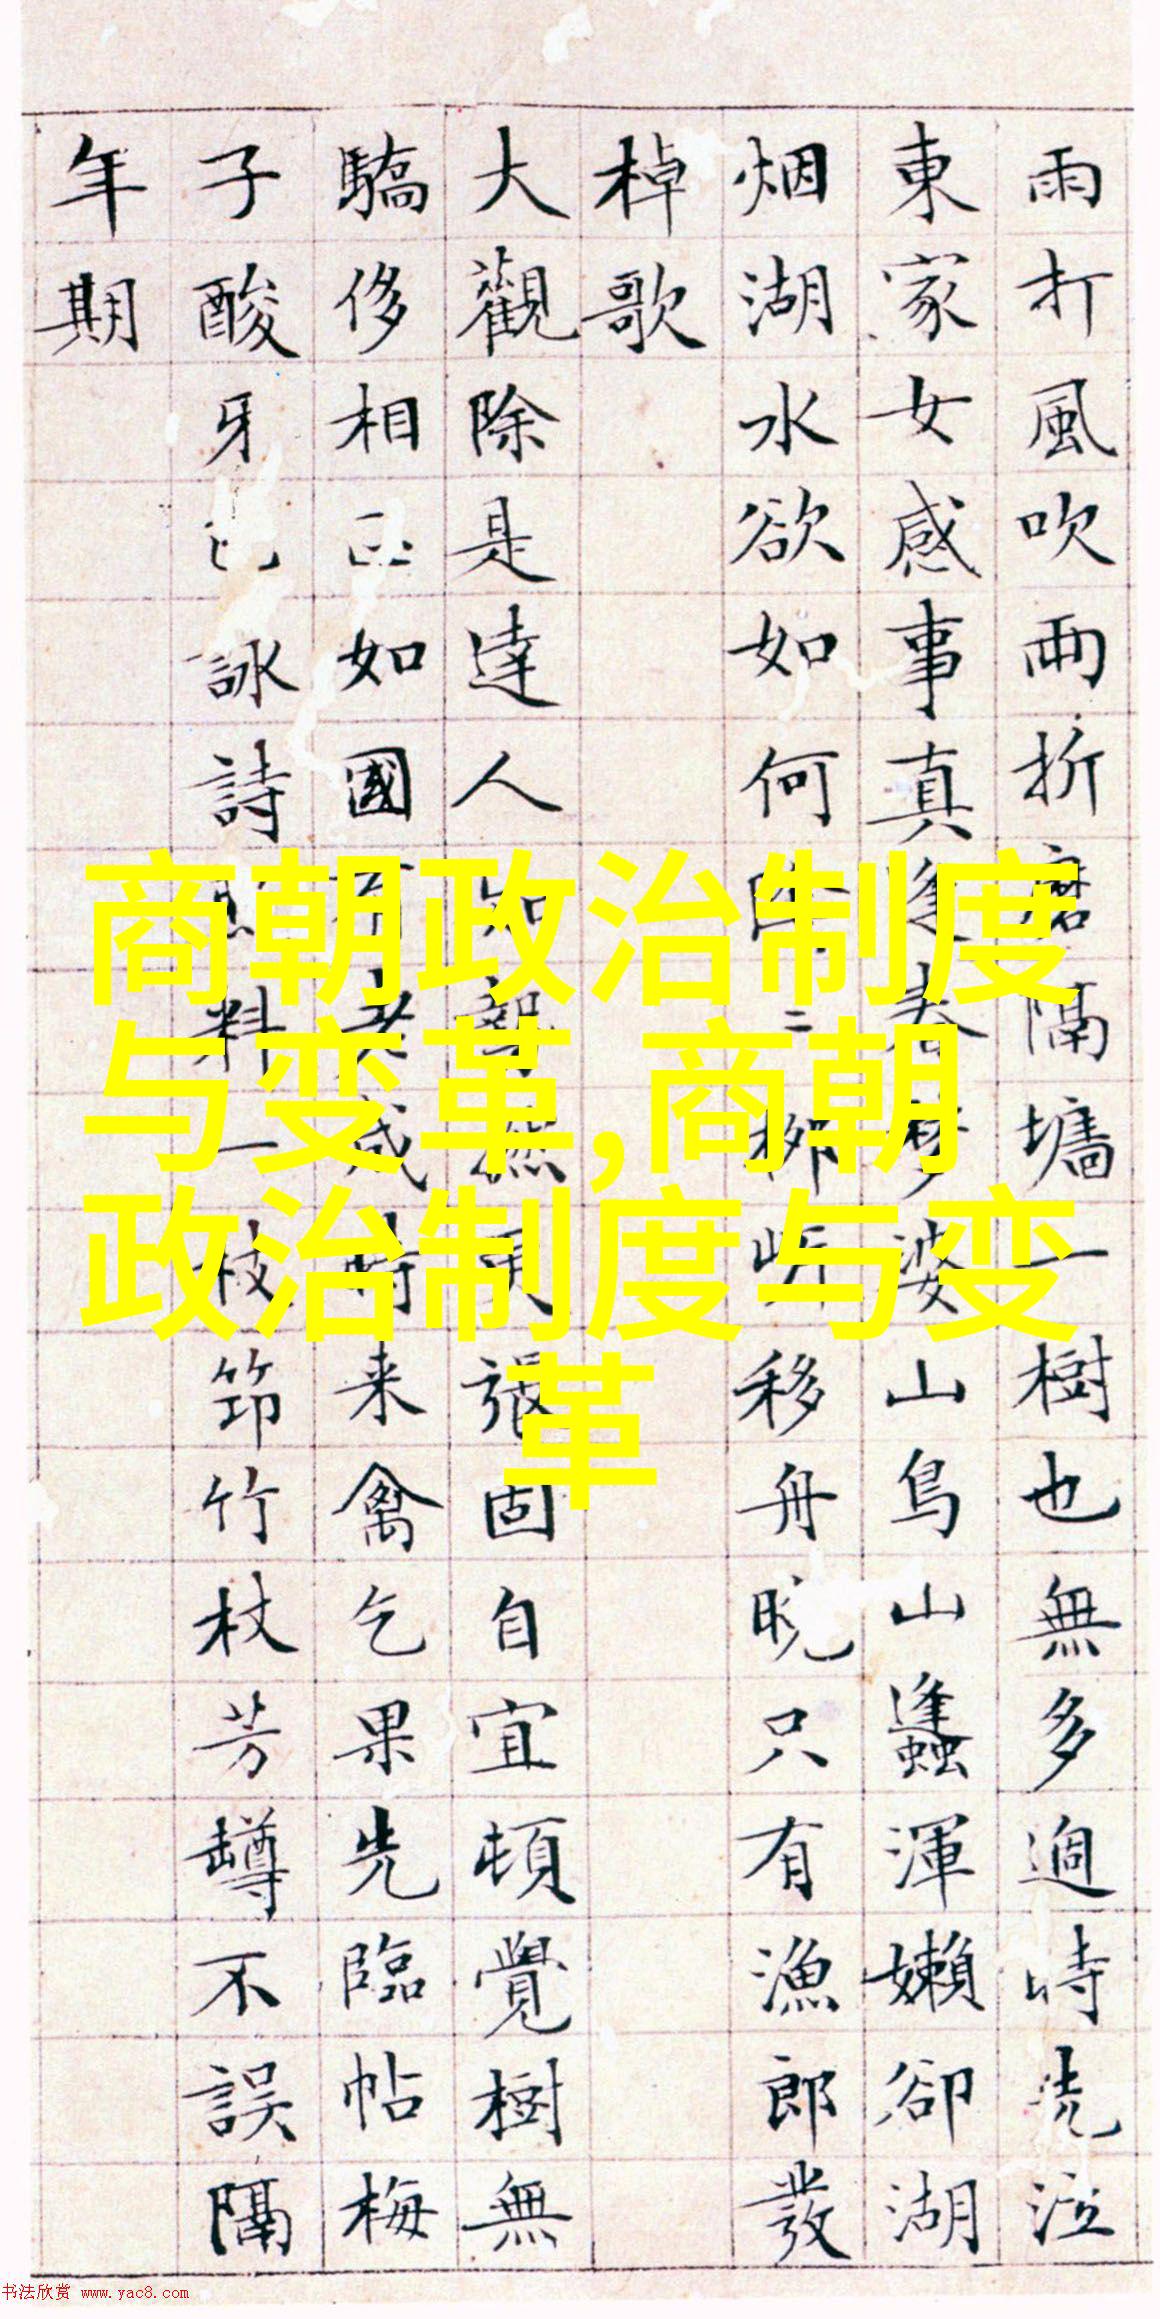 雨打風吹両折磨隔墻一樹也無多過時泣
東家女感事真逢春夢婆山鳥山蠭渾嬾卻湖
烟湖水欲如何二柳移舟晚只有漁郎發
棹歌
大觀除是達人知張固自宜頓覺樹無
驕侈相如國時来禽乞果先臨帖梅
子酸牙詠詩料一枝筇竹杖芳罇不誤隔
年期
商朝政治制度
与变革,商朝
政治制度与变
革
书法欣赏 www.yac8.com